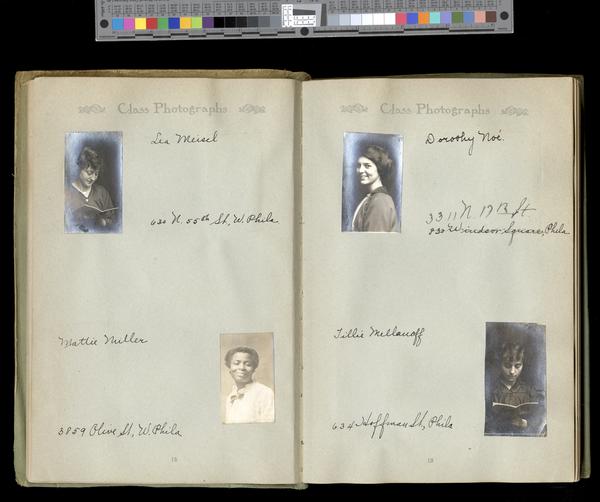 Class Photographs
Lea Meisel
630 N. 55th St, W. Phila
Mattie Miller
3859 Olive St, W. Phila
Class Photographs
Dorothy Noé.
3311 N 17th St
830 Windsor Square, Phila
Tillie Mellanoff
634 Hoffman St, Phila